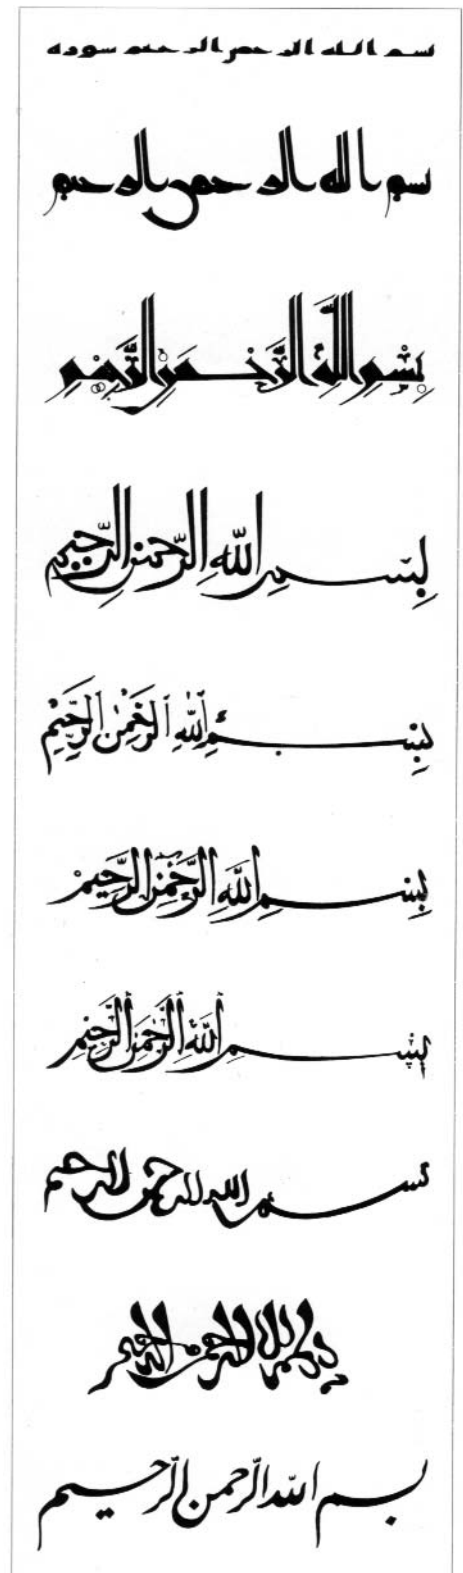 بسم الله الرحمن الرحيم
بسم الله الرحمن الرحيم
بِسْمِ اللَّهِ الرَّحْمَنِ الرَّحِيمِ
بِسْمِ اللّٰهِ الرَّحْمنِ الرَّحِيمِ
بِسْمِ اللّٰهِ الرَّحْمٰنِ الرَّحِيمِ
بِسْمِ اللَّهِ الرَّحْمٰنِ الرَّحِيمِ
بِسْمِ اللَّهِ الرَّحْمٰنِ الرَّحِيمِ
بسم الله الرحمن الرحيم
بسم الله الرحمن الرحيم
بسم اللّه الرّحمن الرّحيم